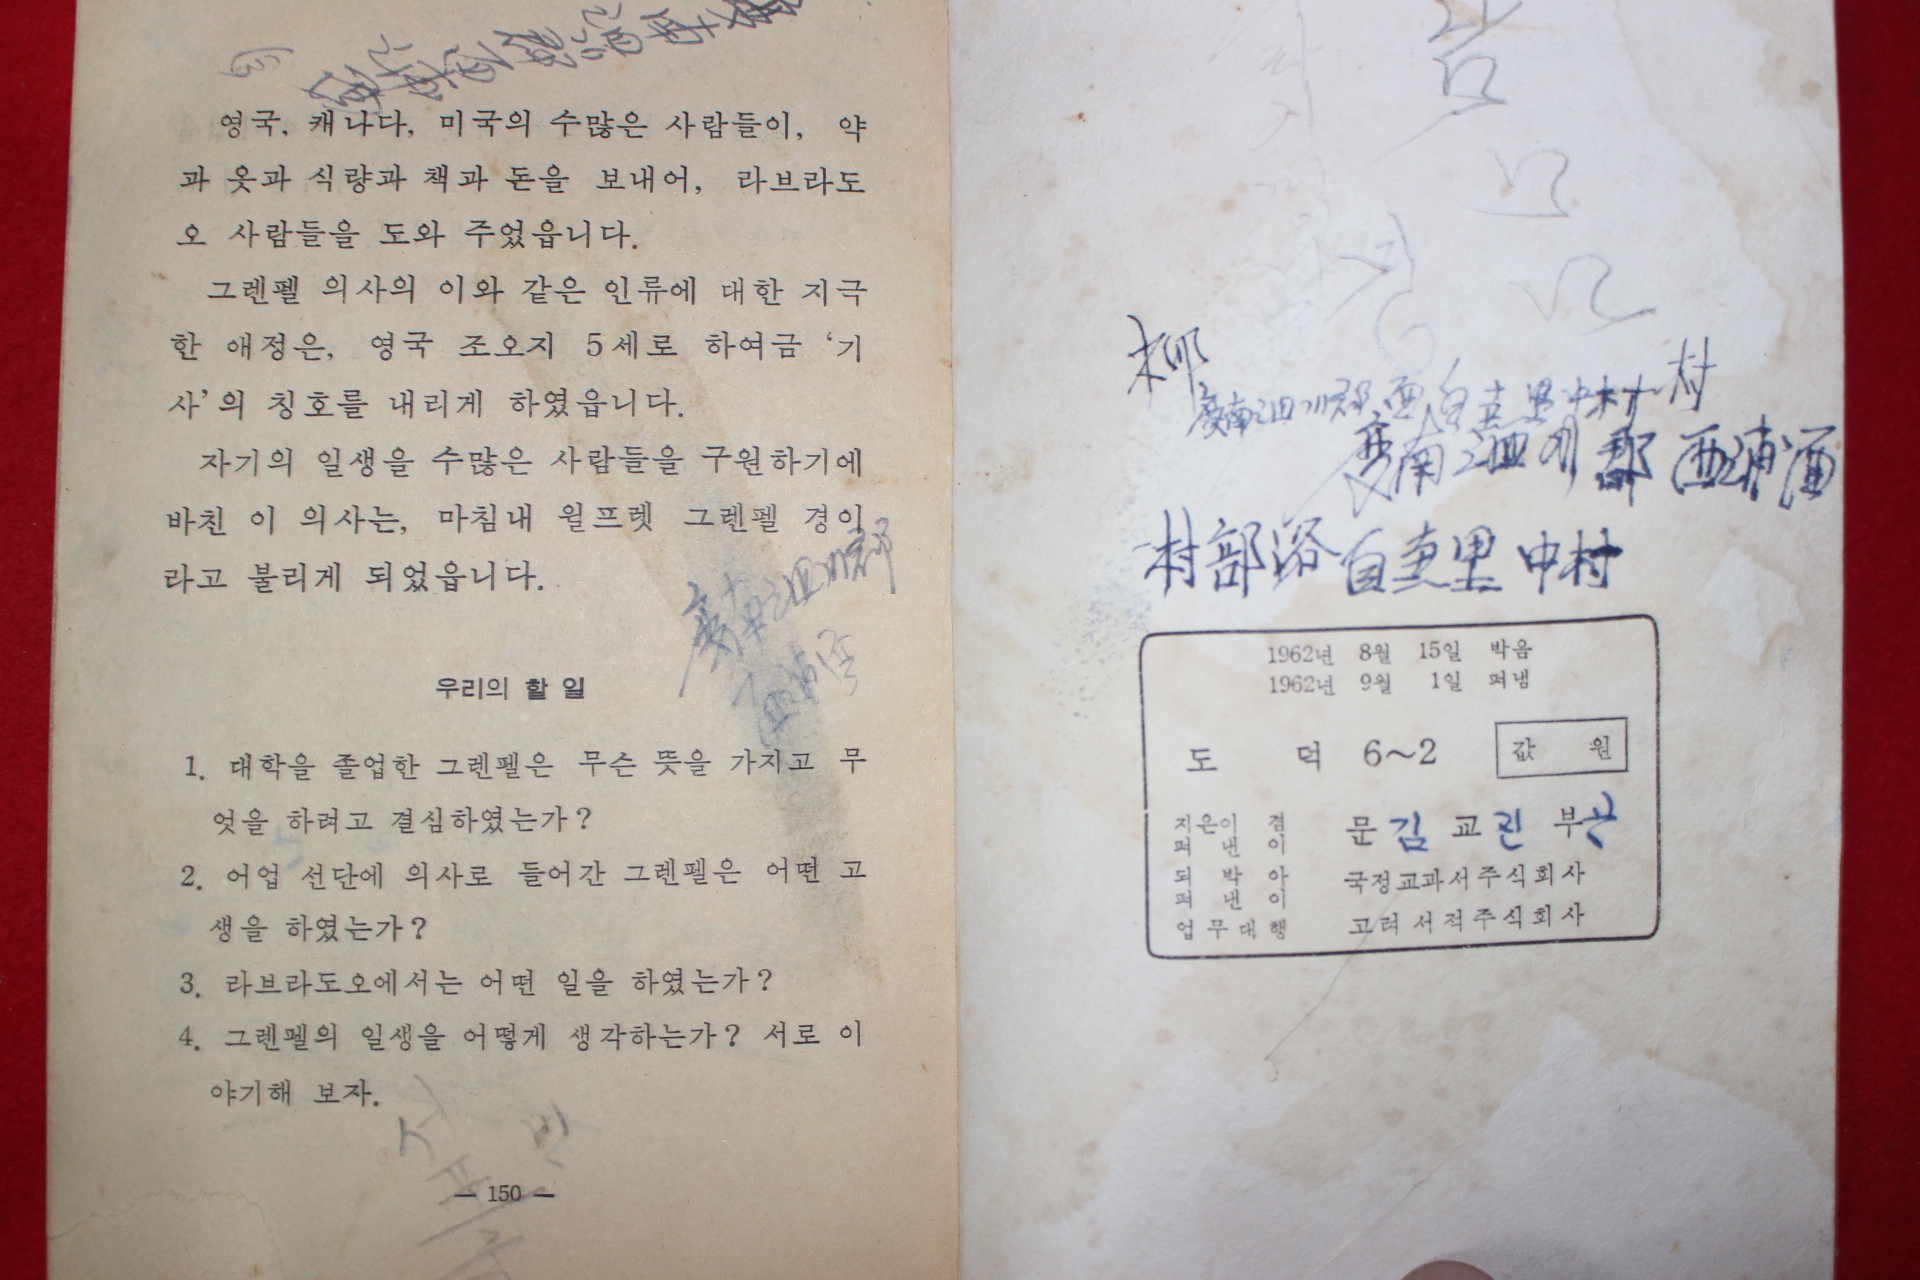 영국, 캐나다, 미국의 수많은 사람들이, 약
과 옷과 식량과 책과 돈을 보내어, 라브라도
오 사람들을 도와 주었읍니다.
그렌펠 의사의 이와 같은 인류에 대한 지극
한 애정은, 영국 조오지 5세로 하여금 ‘기
사’의 칭호를 내리게 하였읍니다.
자기의 일생을 수많은 사람들을 구원하기에
바친 이 의사는, 마침내 윌프렛 그렌펠 경이
라고 불리게 되었읍니다.
우리의 할 일
1. 대학을 졸업한 그렌펠은 무슨 뜻을 가지고 무
엇을 하려고 결심하였는가?
2. 어업 선단에 의사로 들어간 그렌펠은 어떤 고
생을 하였는가?
3. 라브라도오에서는 어떤 일을 하였는가?
4. 그렌펠의 일생을 어떻게 생각하는가? 서로 이
야기해 보자.
— 150 —
柳
村
郡 西浦面
村部落 自惠里 中村
1962년 8월 15일 박음
1962년 9월 1일 펴냄
도 덕 6~2 값 원
지은이 겸
펴 낸 이
문 김 교 진 부
되 박 아
펴 낸 이
국정교과서주식회사
업무대행 고려서적주식회사